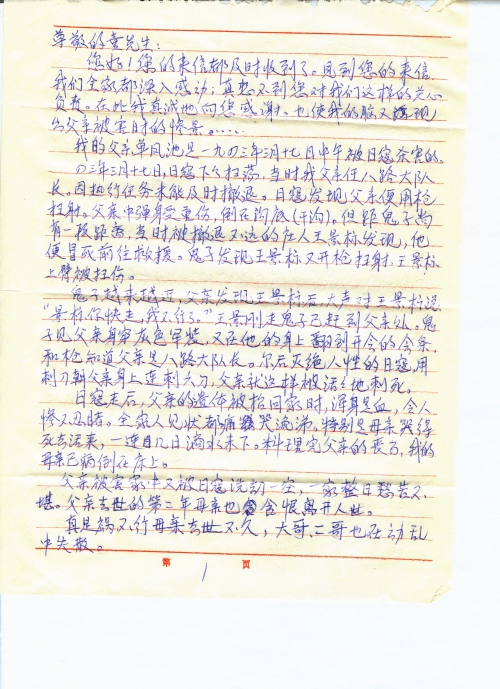 尊敬的童先生：
您好！您的来信都及时收到了。见到您的来信
我们全家都深入感动；真想不到您对我们这样的关心
负责。在此我真诚地向您感谢。也使我的脑又浮现
出父亲被害时的惨景。……
我的父亲单凤池是一九四三年三月十七日中午被日寇杀害的。
四三年三月十七日，日寇下乡扫荡，当时我父亲任八路大队
长。因执行任务未能及时撤退。日寇发现父亲便用枪
扫射。父亲中弹身受重伤，倒在沟底(干沟)。但距鬼子尚
有一段距离，当时被撤退不远的庄人王景标发现，他
便冒死前往救援。鬼子发现王景标又开枪扫射，王景标
上臂被打伤。
鬼子越来越近，父亲发现王景标后大声对王景标说，
“景标你快走，我不行了。”王景刚走鬼子已赶到父亲处。鬼
子见父亲身穿灰色军装，又在他的身上翻到开会的会条，
和枪知道父亲是八路大队长。尔后灭绝人性的日寇，用
刺刀朝父亲身上连刺六刀，父亲就这样被活活地刺死。
日寇走后，父亲的遗体被抬回家时，浑身是血，令人
惨不忍睹。全家人见状都痛哭流涕，特别是母亲哭得
死去活来，一连几日滴水未下。料理完父亲的丧后，我的
母亲已病倒在床上。
父亲被害家中又被日寇洗劫一空，一家整日愁苦不
堪。父亲去世的第二年母亲也含恨离开人世。
真是祸不行母亲去世不久，大哥、二哥也在动乱
中失散。
第 1 页